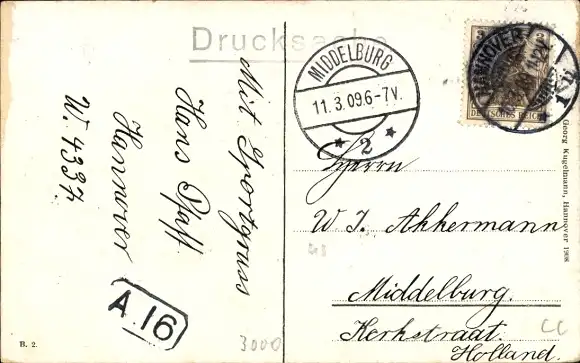 Drucksache
Mit Sportgruss
Hans Pfaff
Hannover
W. 4337.
A.16
3000
B. 2.
MIDDELBURG
11.3.09 6-7V.
* 2 *
HANNOVER
DEUTSCHES REICH
Herrn
W. J. Akkermann
Middelburg.
Kerkstraat.
Holland.
Georg Kugelmann, Hannover 1908
CC